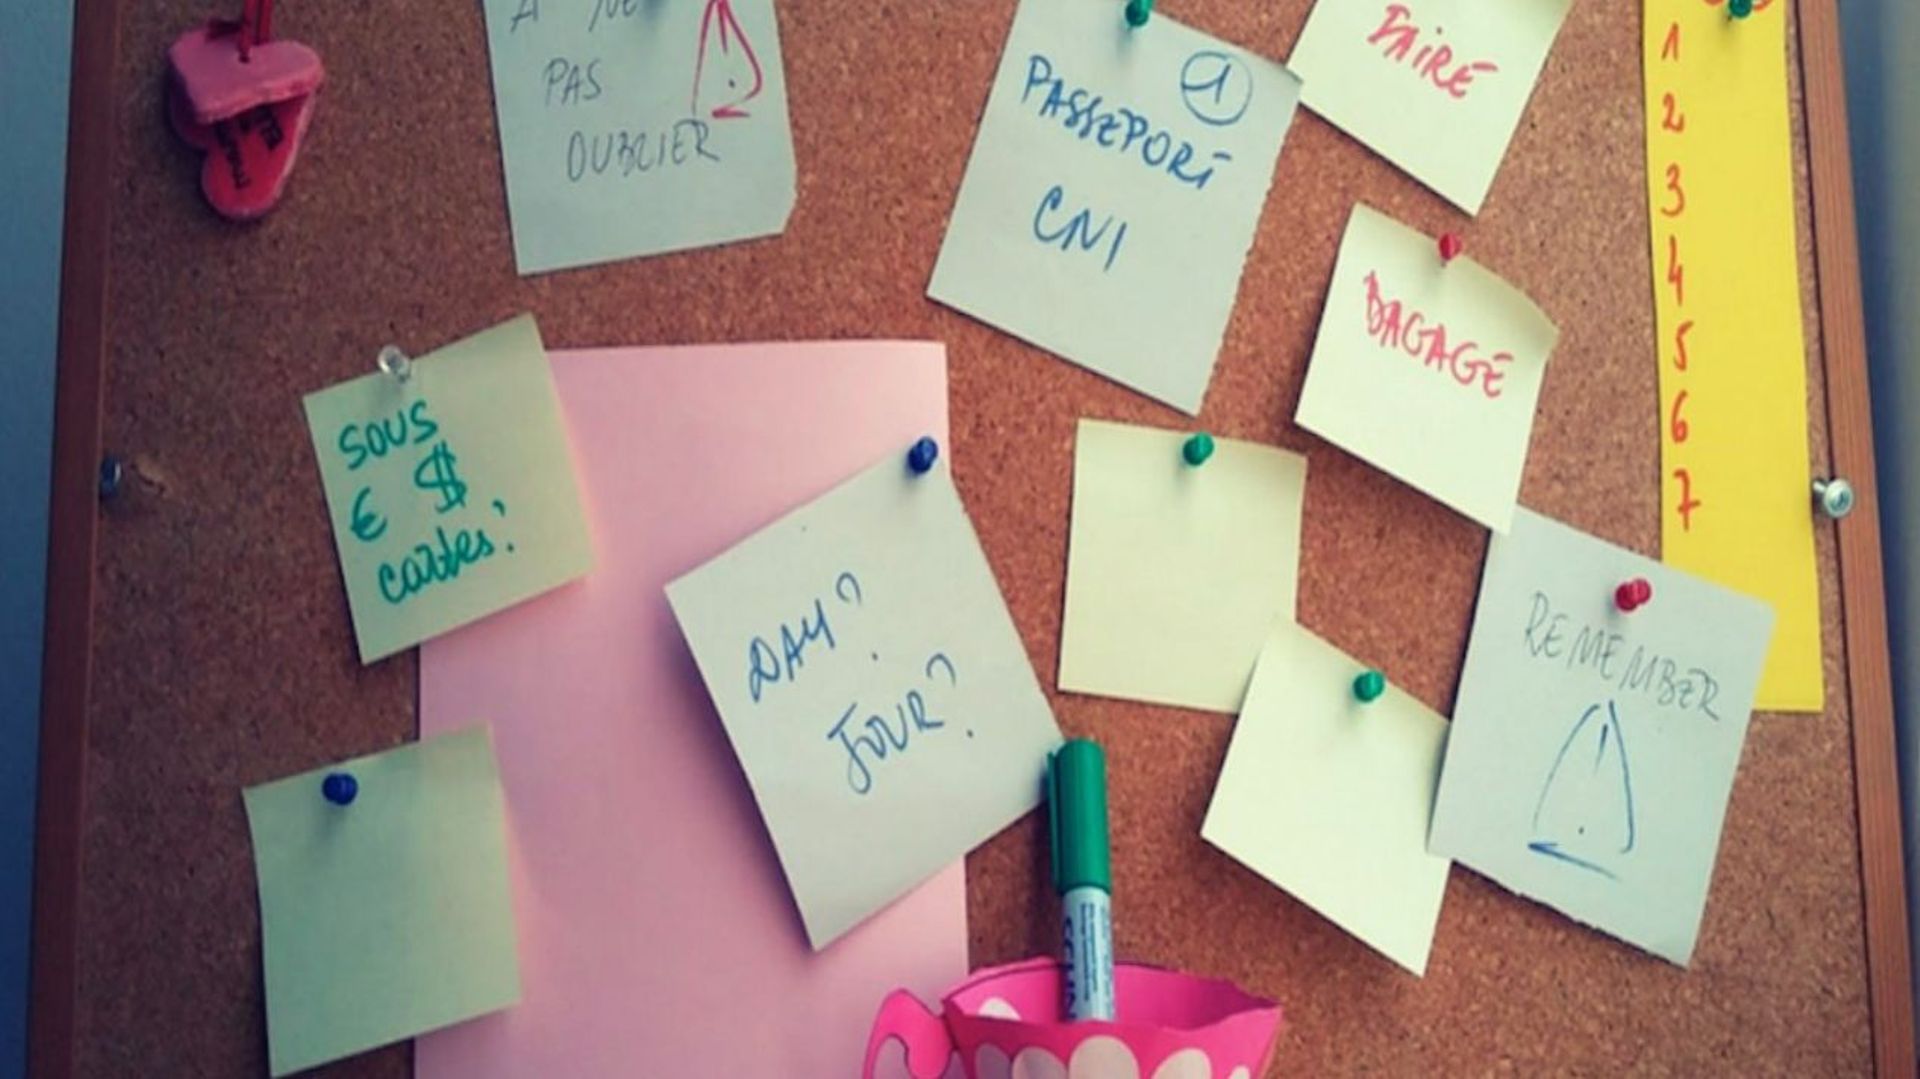 A NE
PAS
OUBLIER
1
PASSEPORT
CNI
FAIRE
1
2
3
4
5
6
7
BAGAGE
SOUS
€ $
cartes?
DAY?
JOUR?
REMEMBER
!